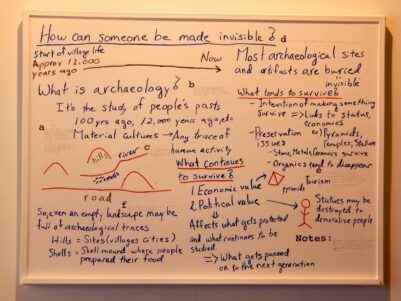 How can someone be made invisible? d
Start of village life
Approx 12.000
years ago
Now
Most archaeological sites
and artifacts are buried
invisible
What is archaeology? b
It's the study of people's pasts
100 yrs ago, 12.000 years ago, etc
Material Cultures → Any trace of
human activity
a
hills
river
c
road
f
So, even an empty landscape may be
full of archaeological traces
Hills = Sites (villages cities)
Shells = Shell mound where people
prepared their food
What continues
to survive?
1. Economic value
2. Political value
Affects what gets protected
and what continues to be
studied
=> What gets passed
on to the next generation
What tends to survive?
- Intention of making something
survive => Links to status,
economics
- Preservation ex) Pyramids,
issues Temples, Statues
- Stone, Metals, Ceramics survive
- Organics tend to disappear
e
Tourism
pyramids
Statues may be
destroyed to
demoralize people
Notes: